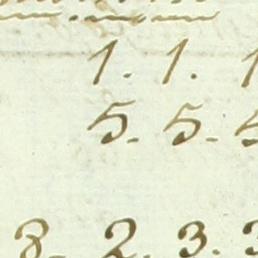 1. 1. 1
5. 5. 5
8. 2. 3. 3